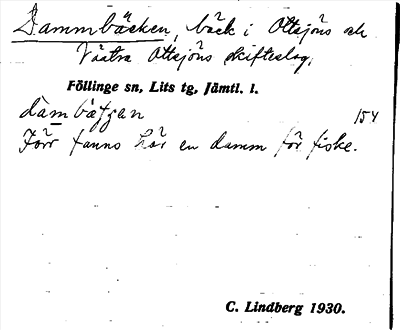 Dammbäcken, bäck i Ottsjöns och
Västra Ottsjöns skifteslag.
Föllinge sn, Lits tg, Jämtl. l.
154
Förr fanns här en damm för fiske.
C. Lindberg 1930.